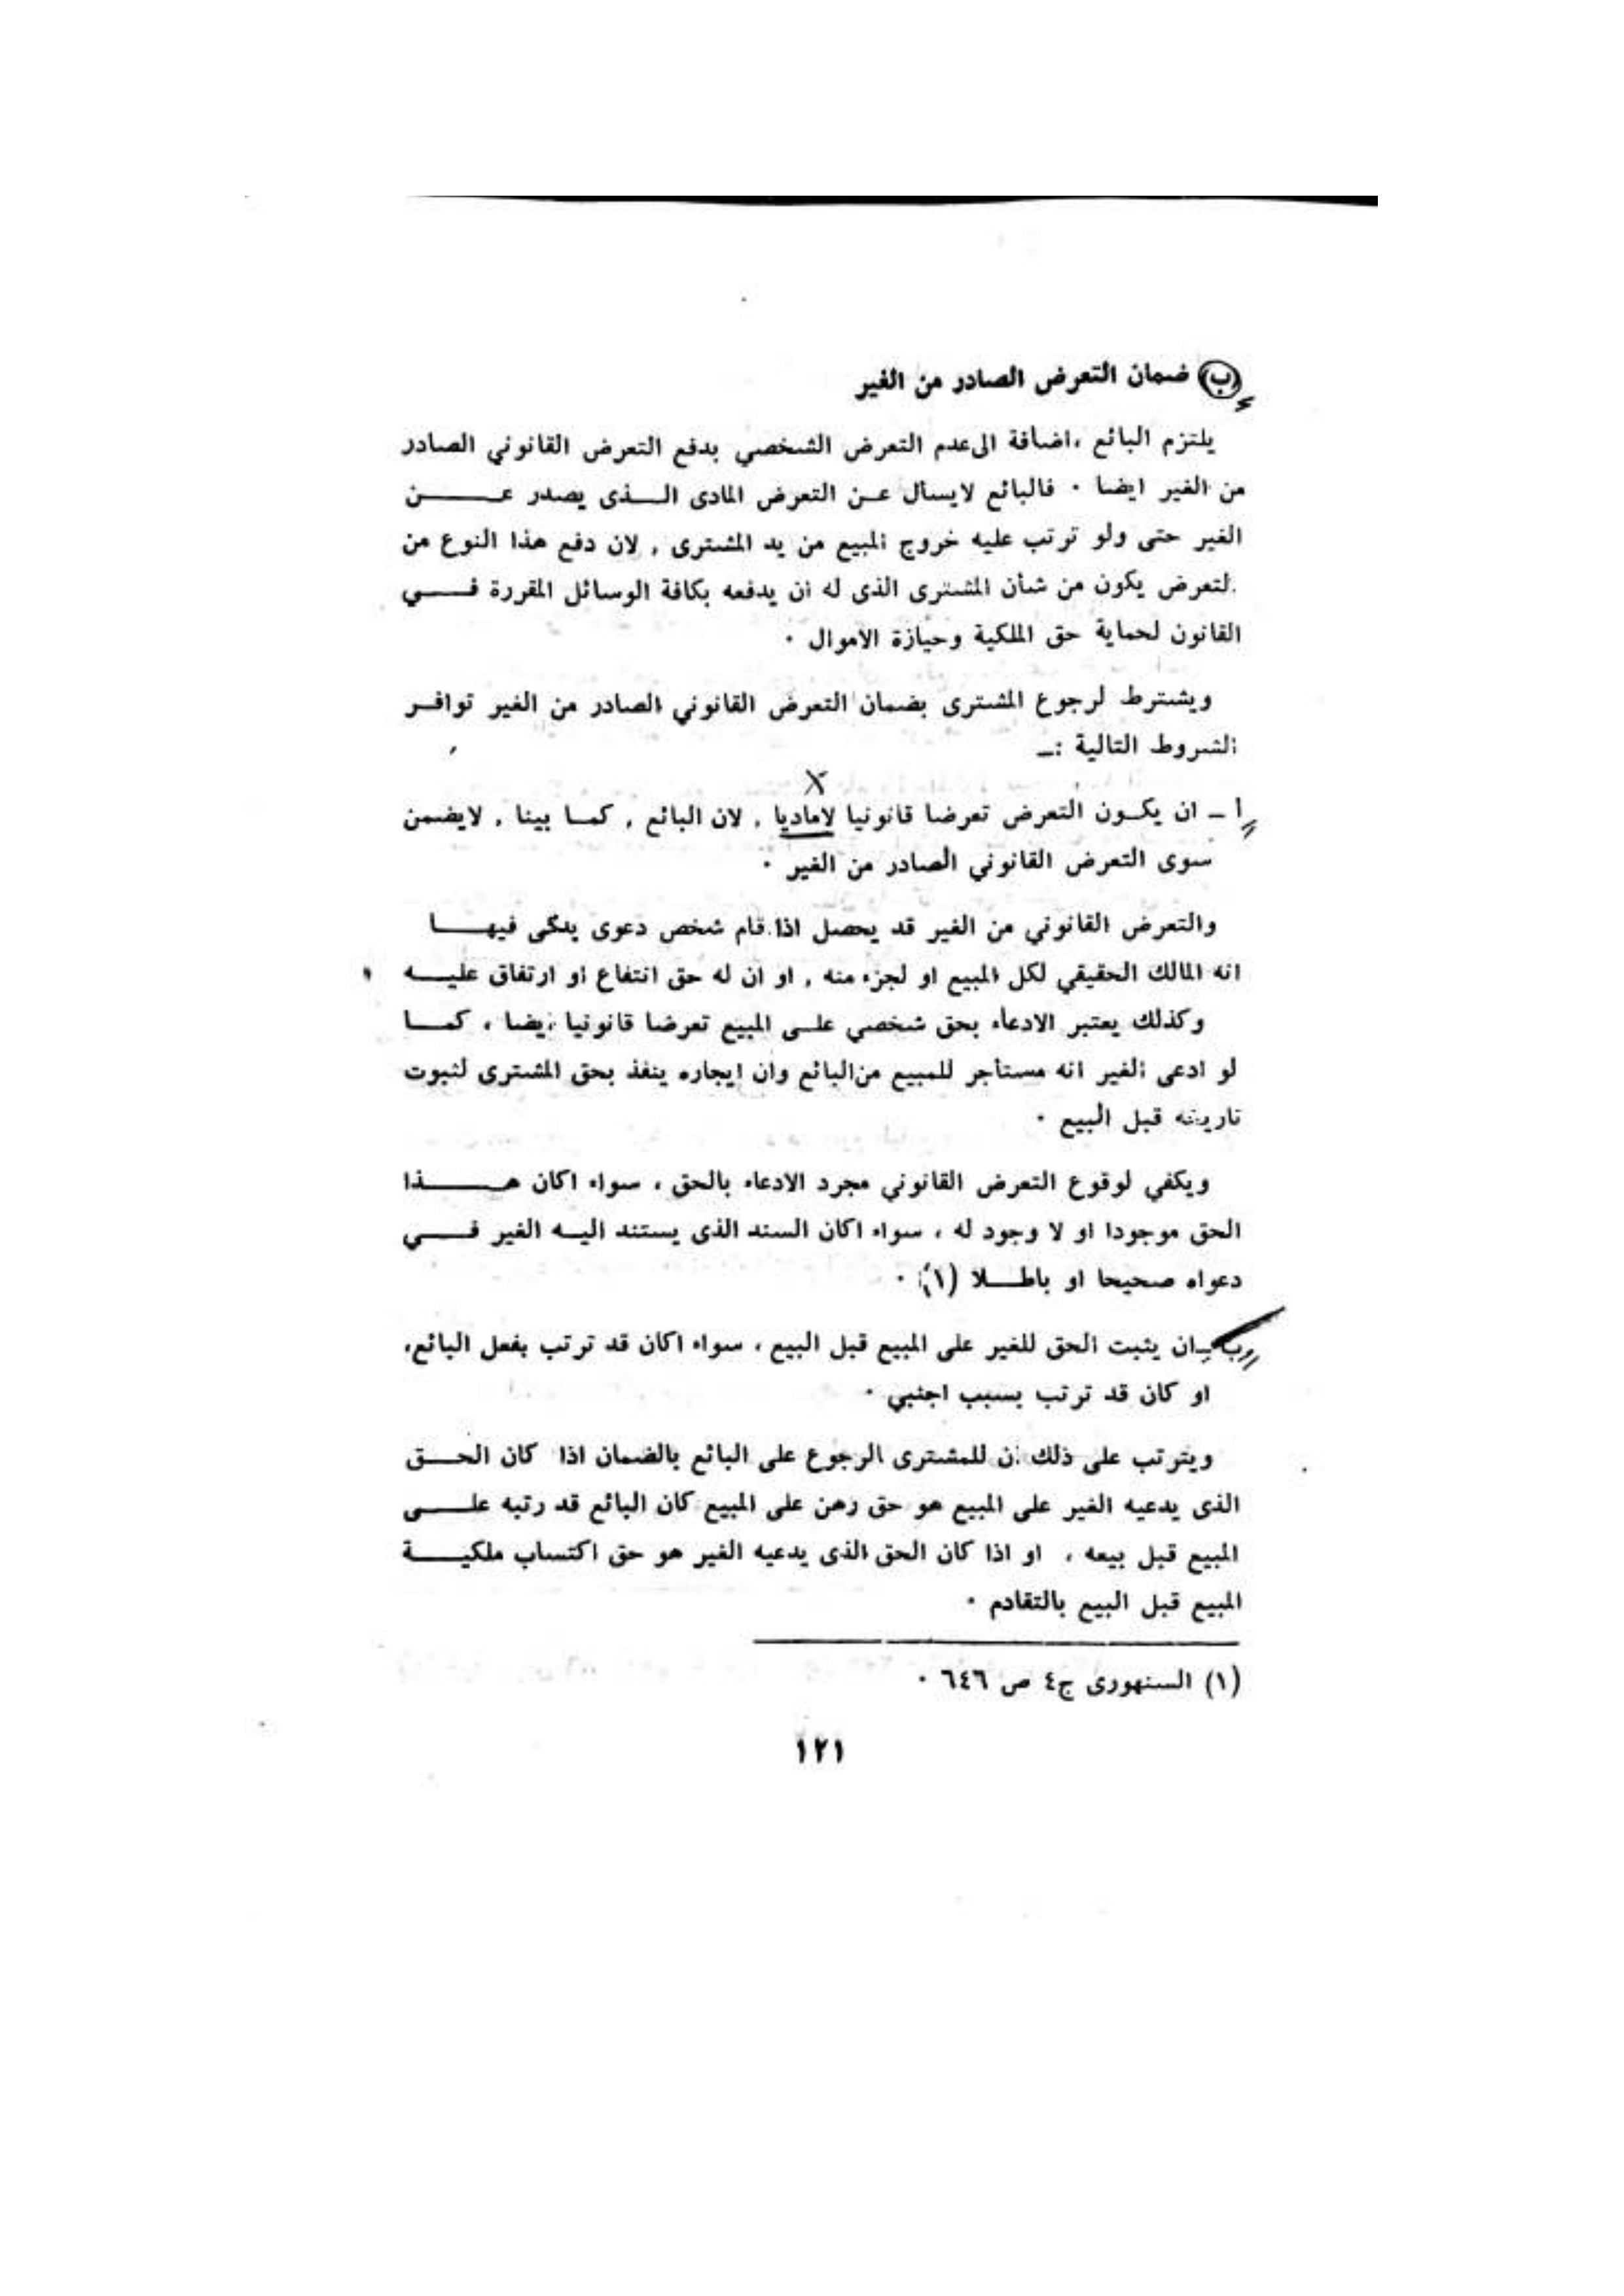 (ب) ضمان التعرض الصادر من الغير
يلتزم البائع ،اضافة الى عدم التعرض الشخصي بدفع التعرض القانوني الصادر
من الغير ايضا . فالبائع لايسأل عـن التعرض المادى الـــذى يصدر عـــــــن
الغير حتى ولو ترتب عليه خروج المبيع من يد المشترى , لان دفع هذا النوع من
لتعرض يكون من شأن المشترى الذى له ان يدفعه بكافة الوسائل المقررة فـــــي
القانون لحماية حق الملكية وحيازة الاموال .
ويشترط لرجوع المشترى بضمان التعرض القانوني الصادر من الغير توافـــر
الشروط التالية :ــ
أ ــ ان يكــون التعرض تعرضا قانونيا لاماديا , لان البائع , كمــا بينا , لايضمن
سوى التعرض القانوني الصادر من الغير .
والتعرض القانوني من الغير قد يحصل اذا قام شخص دعوى يدعى فيهـــــا
انه المالك الحقيقي لكل المبيع او لجزء منه , او ان له حق انتفاع او ارتفاق عليـــه
وكذلك يعتبر الادعاء بحق شخصي علــى المبيع تعرضا قانونيا ايضا ، كمــــا
لو ادعى الغير انه مستأجر للمبيع من البائع وان ايجاره ينفذ بحق المشترى لثبوت
تاريخه قبل البيع .
ويكفي لوقوع التعرض القانوني مجرد الادعاء بالحق ، سواء اكان هــــــــذا
الحق موجودا او لا وجود له ، سواء اكان السند الذى يستند اليــه الغير فـــــي
دعواه صحيحا او باطــــلا (١) .
ب ــ ان يثبت الحق للغير على المبيع قبل البيع ، سواء اكان قد ترتب بفعل البائع،
او كان قد ترتب بسبب اجنبي .
ويترتب على ذلك ان للمشترى الرجوع على البائع بالضمان اذا كان الحــــق
الذى يدعيه الغير على المبيع هو حق رهن على المبيع كان البائع قد رتبه علـــــى
المبيع قبل بيعه ، او اذا كان الحق الذى يدعيه الغير هو حق اكتساب ملكيـــــة
المبيع قبل البيع بالتقادم .
(١) السنهورى ج٤ ص ٦٤٦ .
١٢١